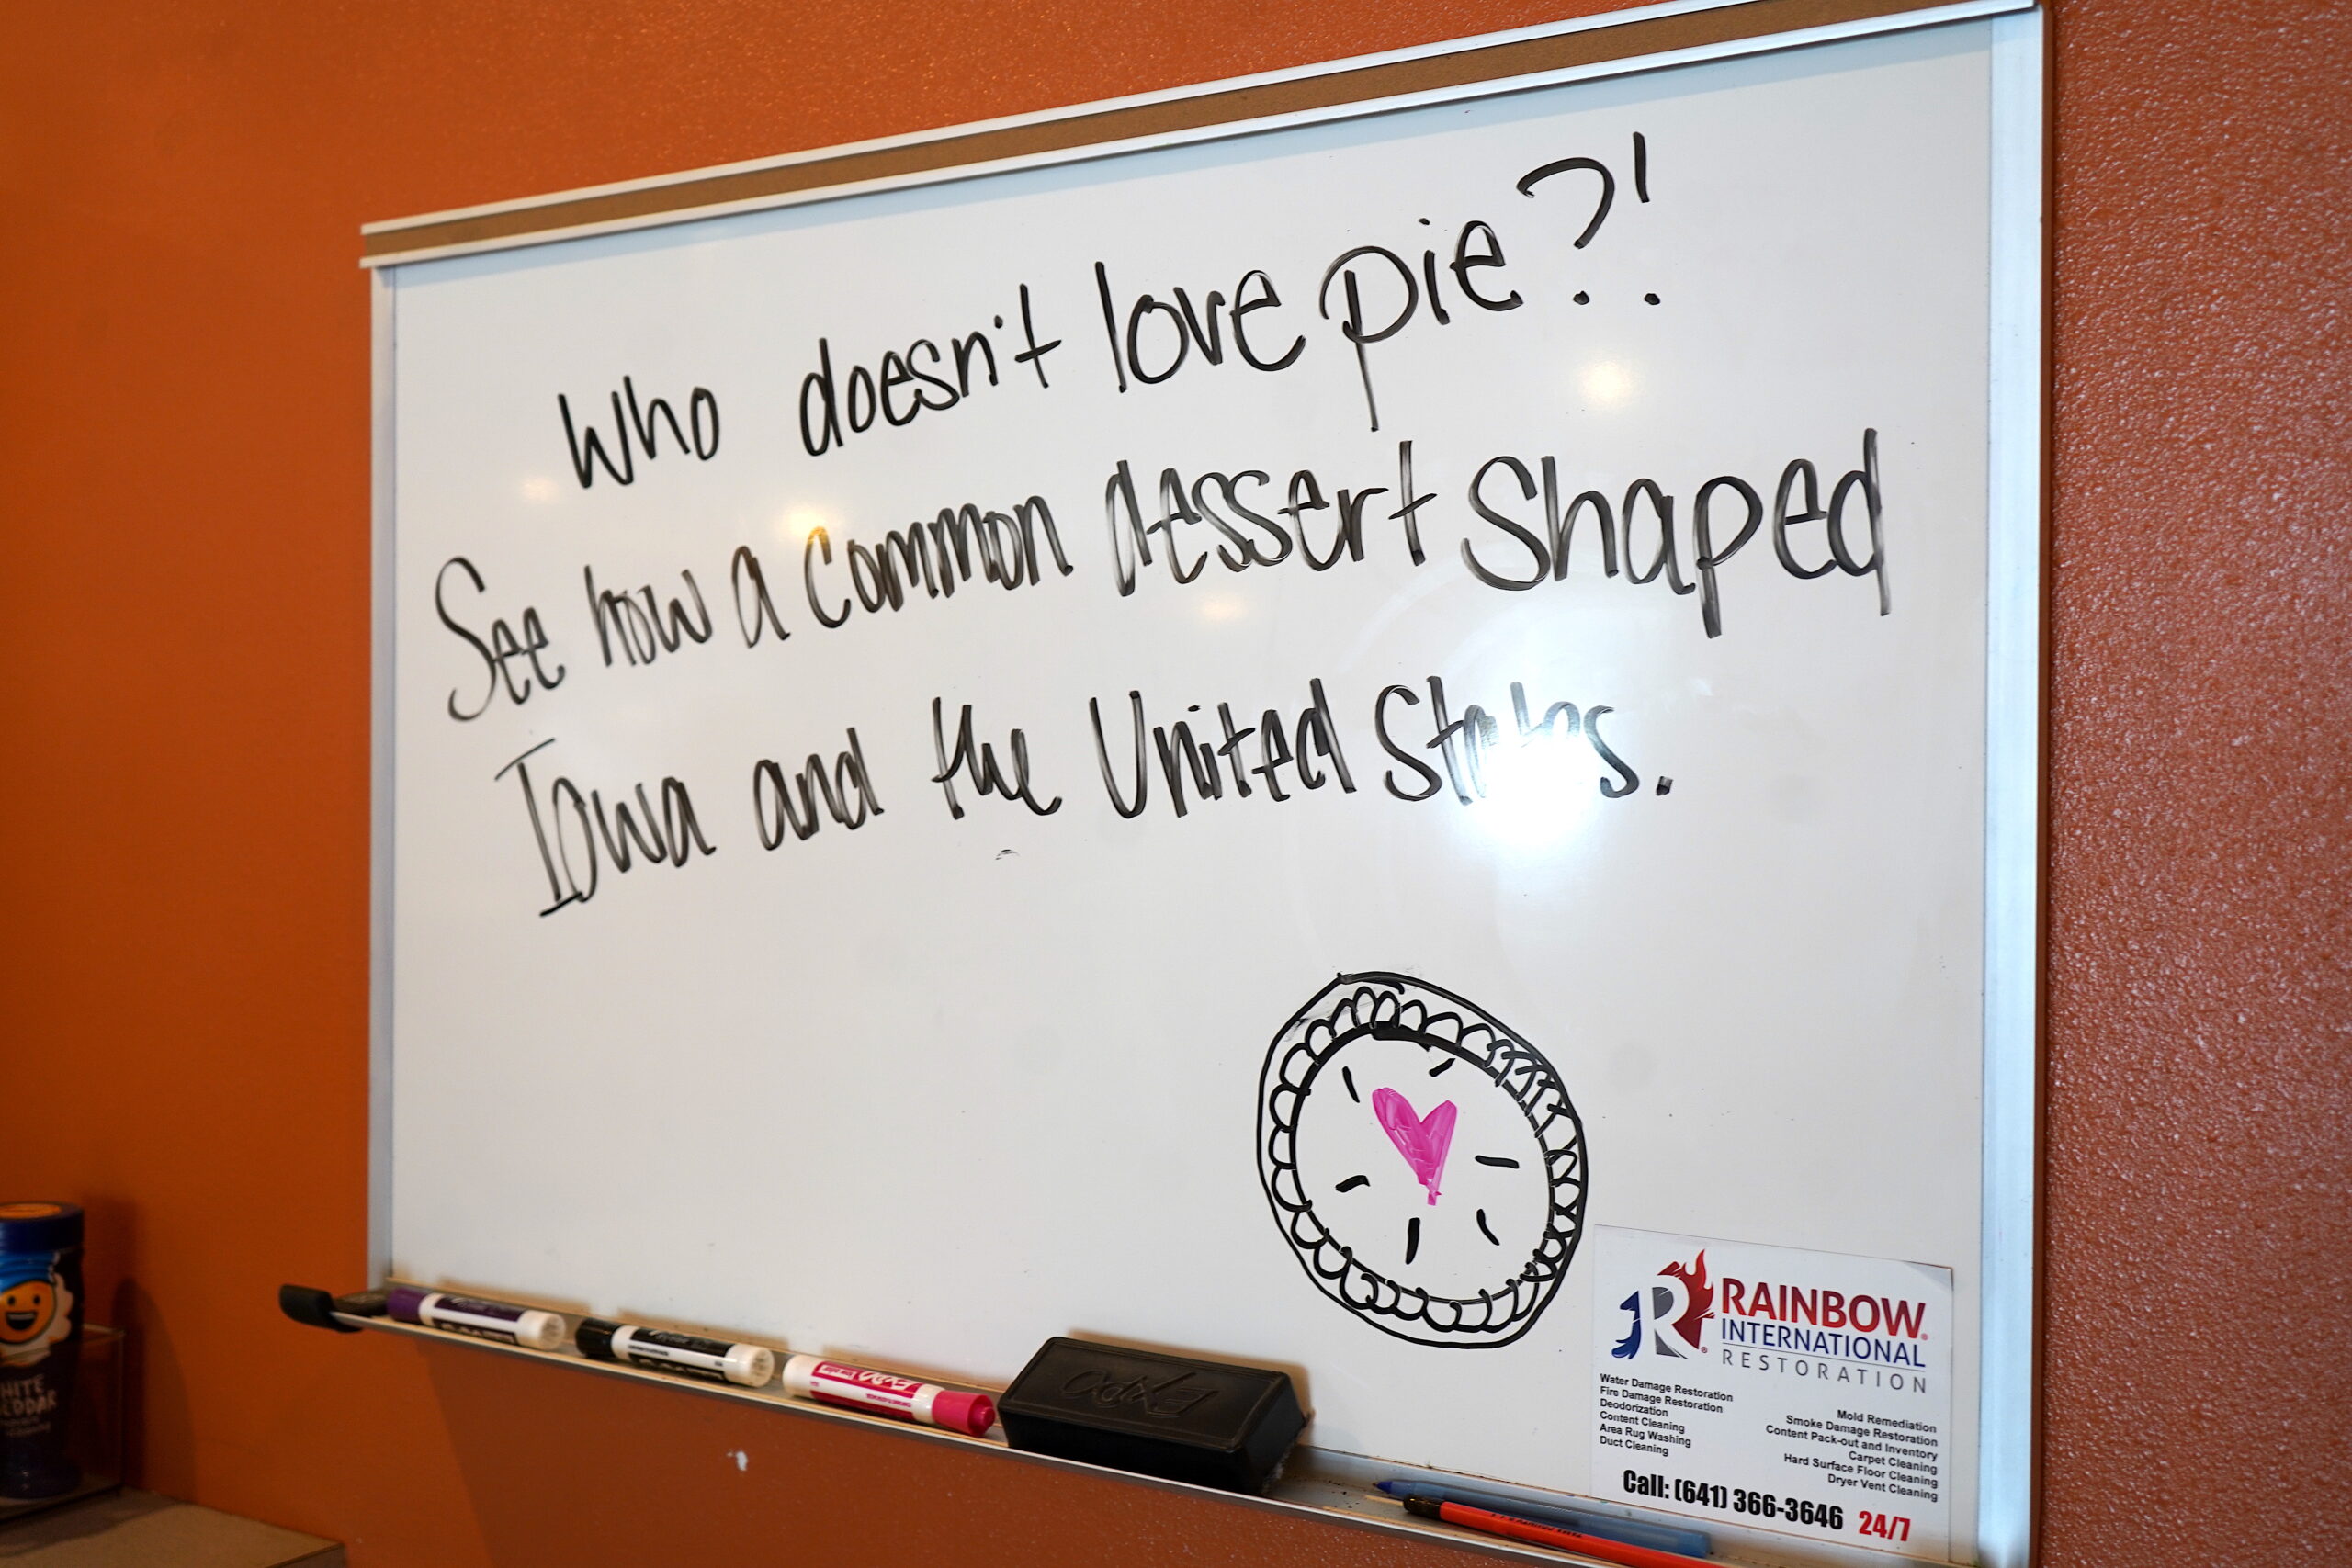 Who doesn't love pie?!
See how a common dessert shaped
Iowa and the United States.
RAINBOW®
INTERNATIONAL
RESTORATION
Water Damage Restoration
Fire Damage Restoration
Deodorization
Content Cleaning
Area Rug Washing
Duct Cleaning
Mold Remediation
Smoke Damage Restoration
Content Pack-out and Inventory
Carpet Cleaning
Hard Surface Floor Cleaning
Dryer Vent Cleaning
Call: (641) 366-3646 24/7
EXPO
EXPO